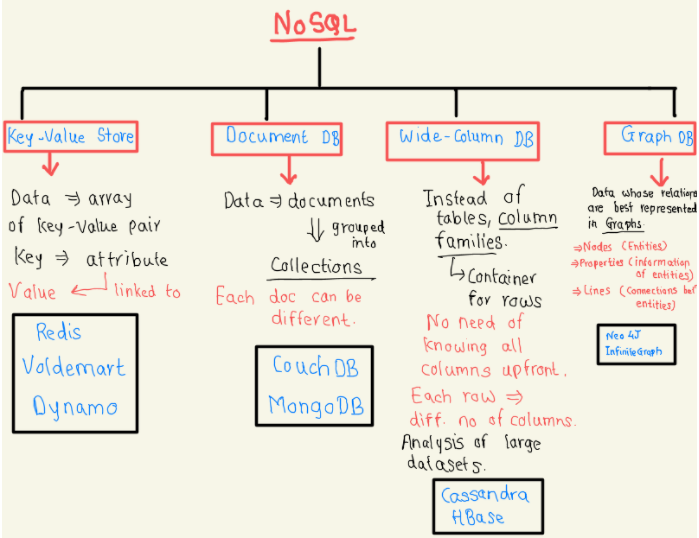 NoSQL
Key-Value Store
Data ⇒ array
of key-value pair
Key ⇒ attribute
Value ← linked to
Redis
Voldemart
Dynamo
Document DB
Data ⇒ documents
⇓ grouped
into
Collections
Each doc can be
different.
CouchDB
MongoDB
Wide-Column DB
Instead of
tables, column
families.
↳ Container
for rows
No need of
knowing all
columns upfront.
Each row ⇒
diff. no of columns.
Analysis of large
datasets.
Cassandra
HBase
Graph DB
Data whose relations
are best represented
in Graphs.
⇒Nodes (Entities)
⇒Properties (information
of entities)
⇒Lines (Connections bet
entities)
Neo4J
InfiniteGraph